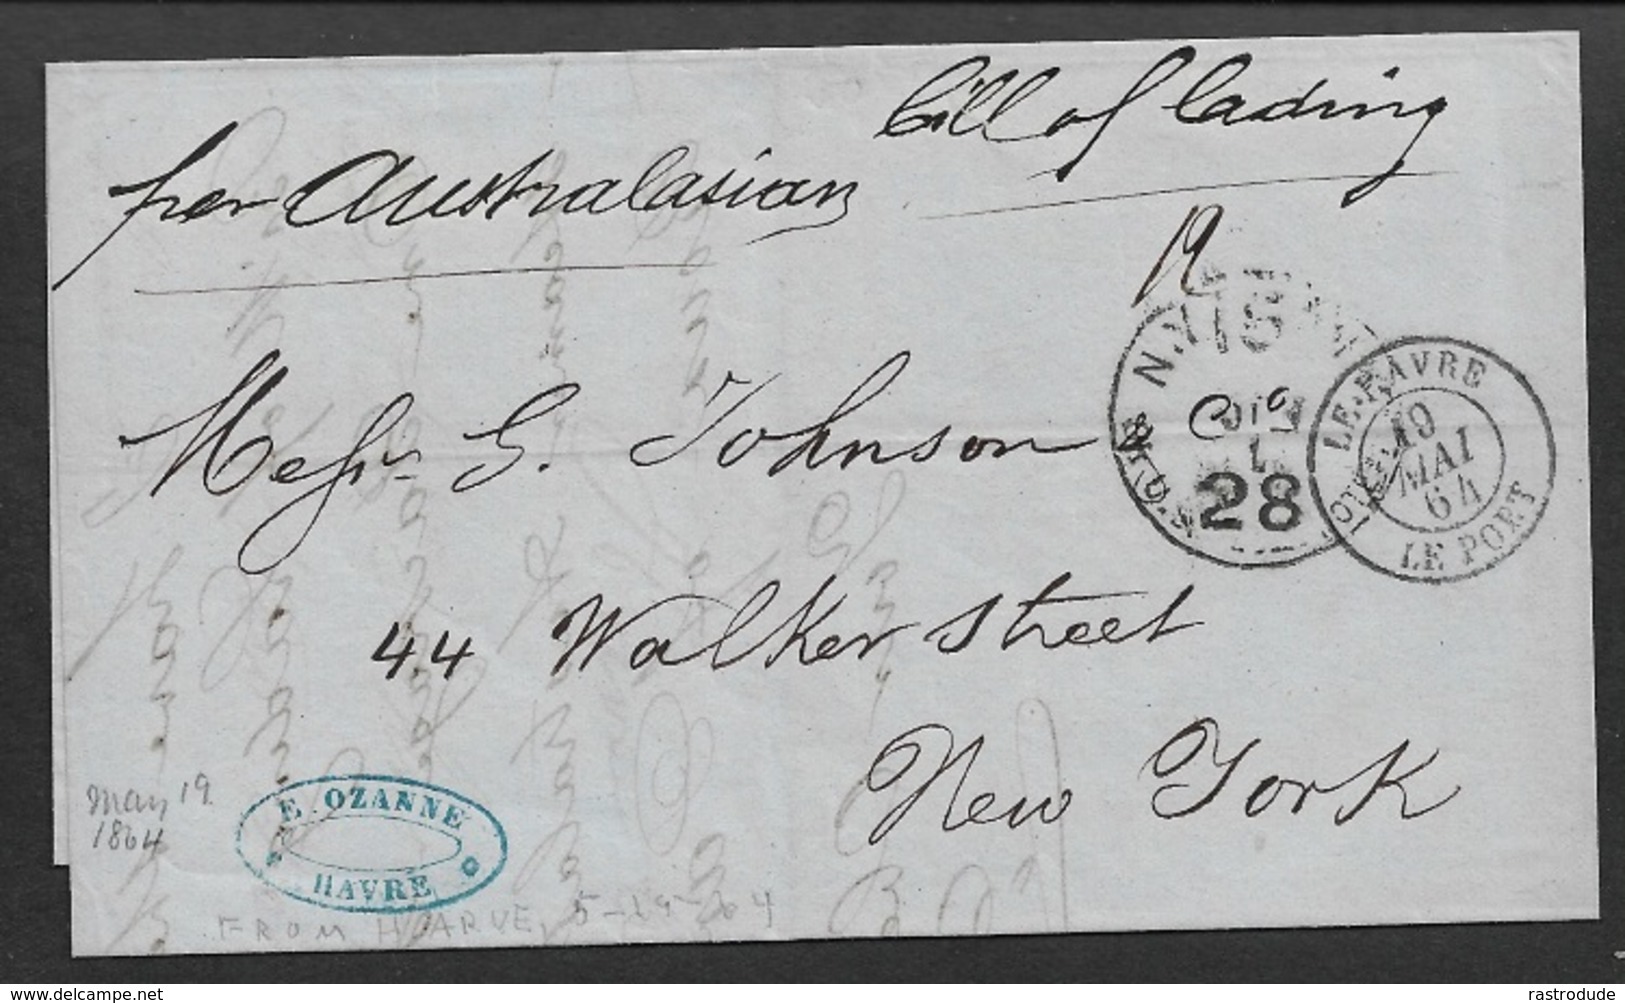 bill of lading
per Australasian
19
N.Y.
15
28
LE HAVRE
19
MAI
64
LE PORT
Messrs G. Johnson & Co
44 Walker Street
New York
May 19
1864
E. OZANNE
HAVRE
FROM HARVE, 5-19-64
www.delcampe.net
rastrodude